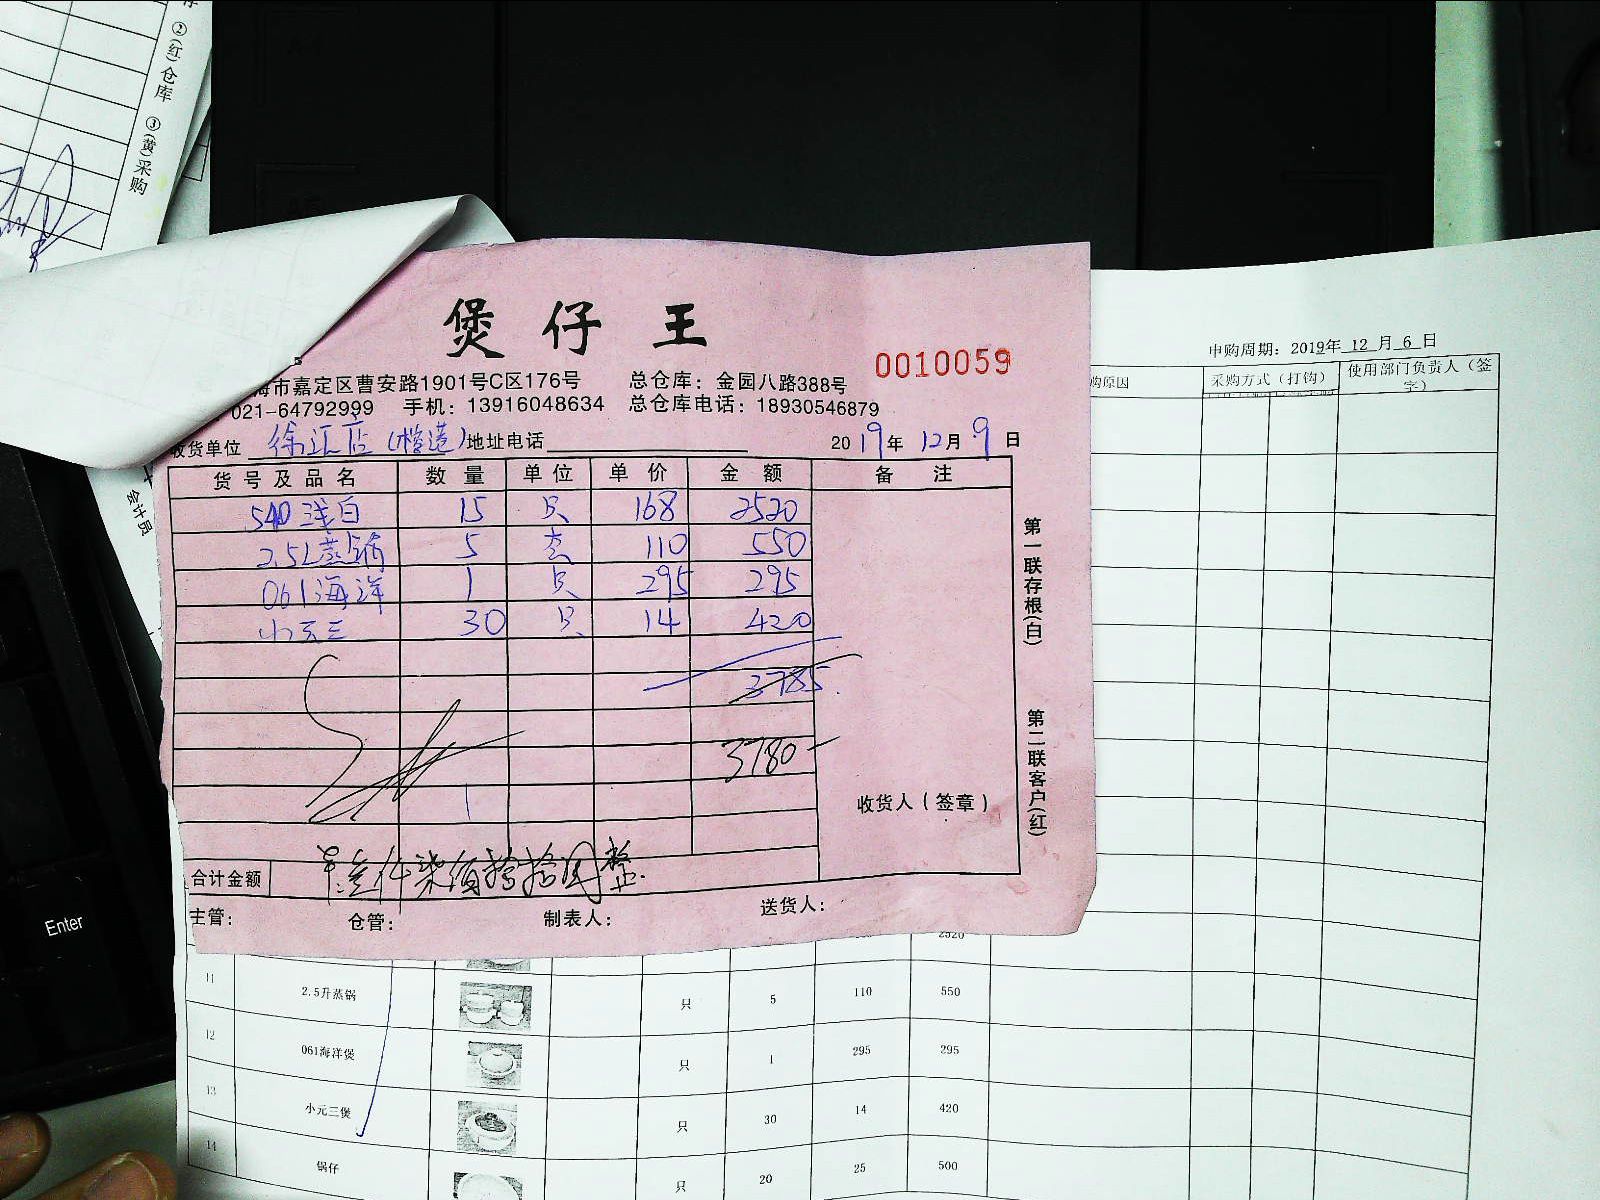 ②(红)仓库 ③(黄)采购
会计员
煲仔王
0010059
海市嘉定区曹安路1901号C区176号 总仓库：金园八路388号
021-64792999 手机：13916048634 总仓库电话：18930546879
收货单位 徐汇店 地址电话 2019年12月9日
货号及品名 数量 单位 单价 金额 备注
540浅白 15 只 168 2520
2.5L蒸锅 5 套 110 550
061海洋 1 只 295 295
小元三 30 只 14 420
3785
3780
收货人（签章）
合计金额 叁仟柒佰捌拾圆整
主管： 仓管： 制表人： 送货人：
第一联存根(白)
第二联客户(红)
申购周期：2019年 12 月 6 日
购原因 采购方式（打钩） 使用部门负责人（签字）
2520
11 2.5升蒸锅 只 5 110 550
12 061海洋煲 只 1 295 295
13 小元三煲 只 30 14 420
14 锅仔 只 20 25 500
Enter